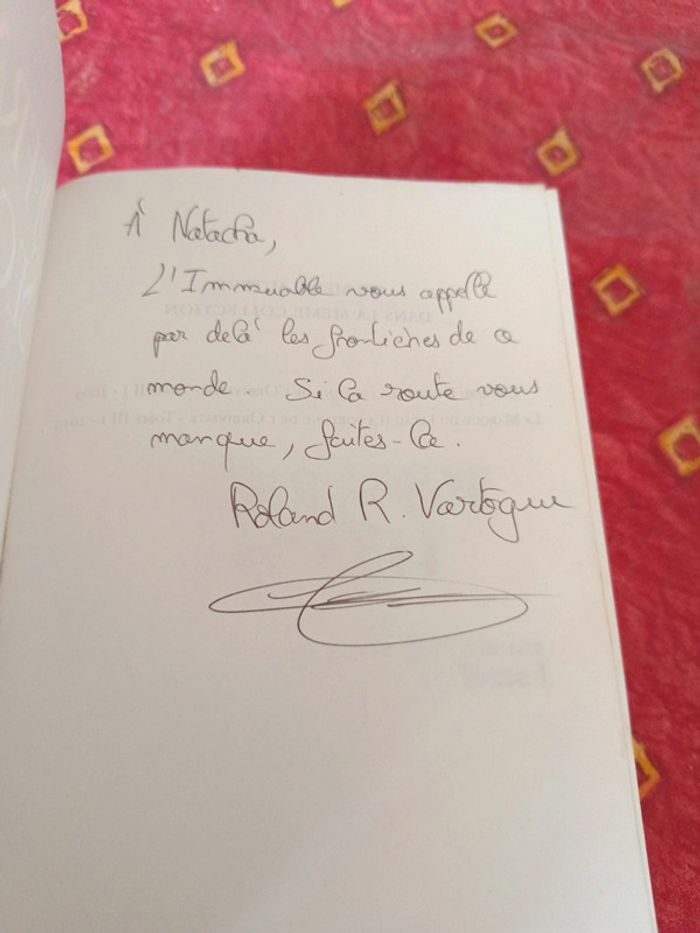 À Natacha,
L'Immuable vous appelle
par delà les frontières de ce
monde. Si la route vous
manque, faites-la.
Roland R. Vartogue
DANS LA MÊME COLLECTION